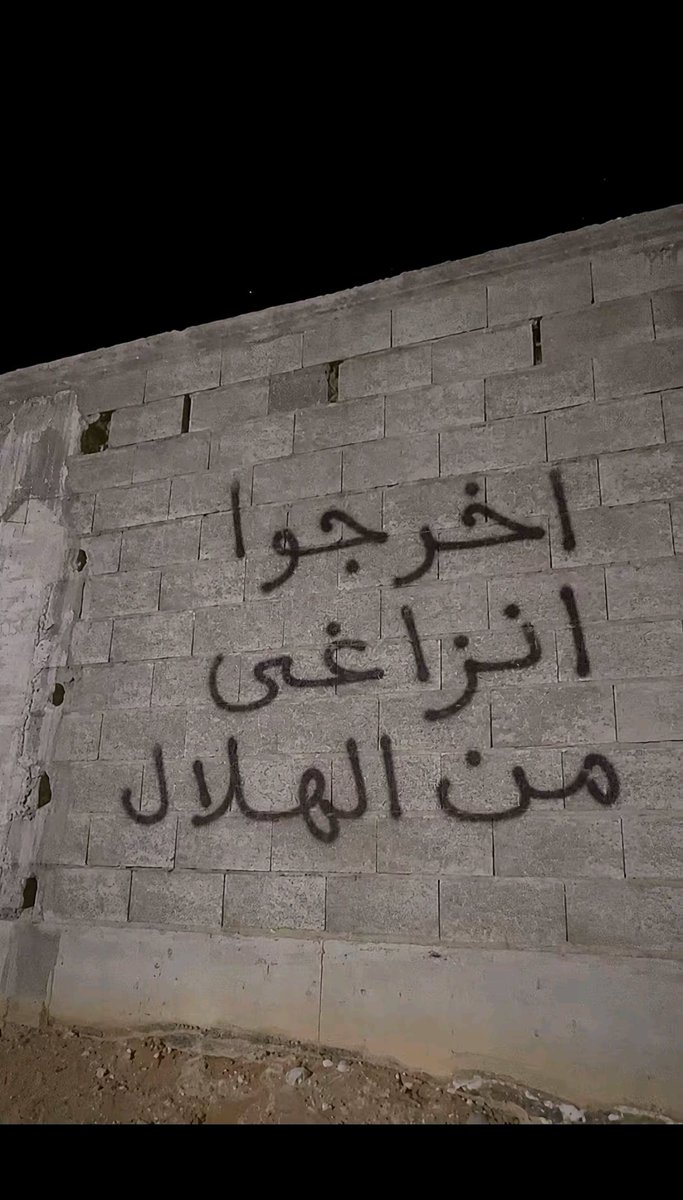 اخرجوا
انزاغي
من الهلال